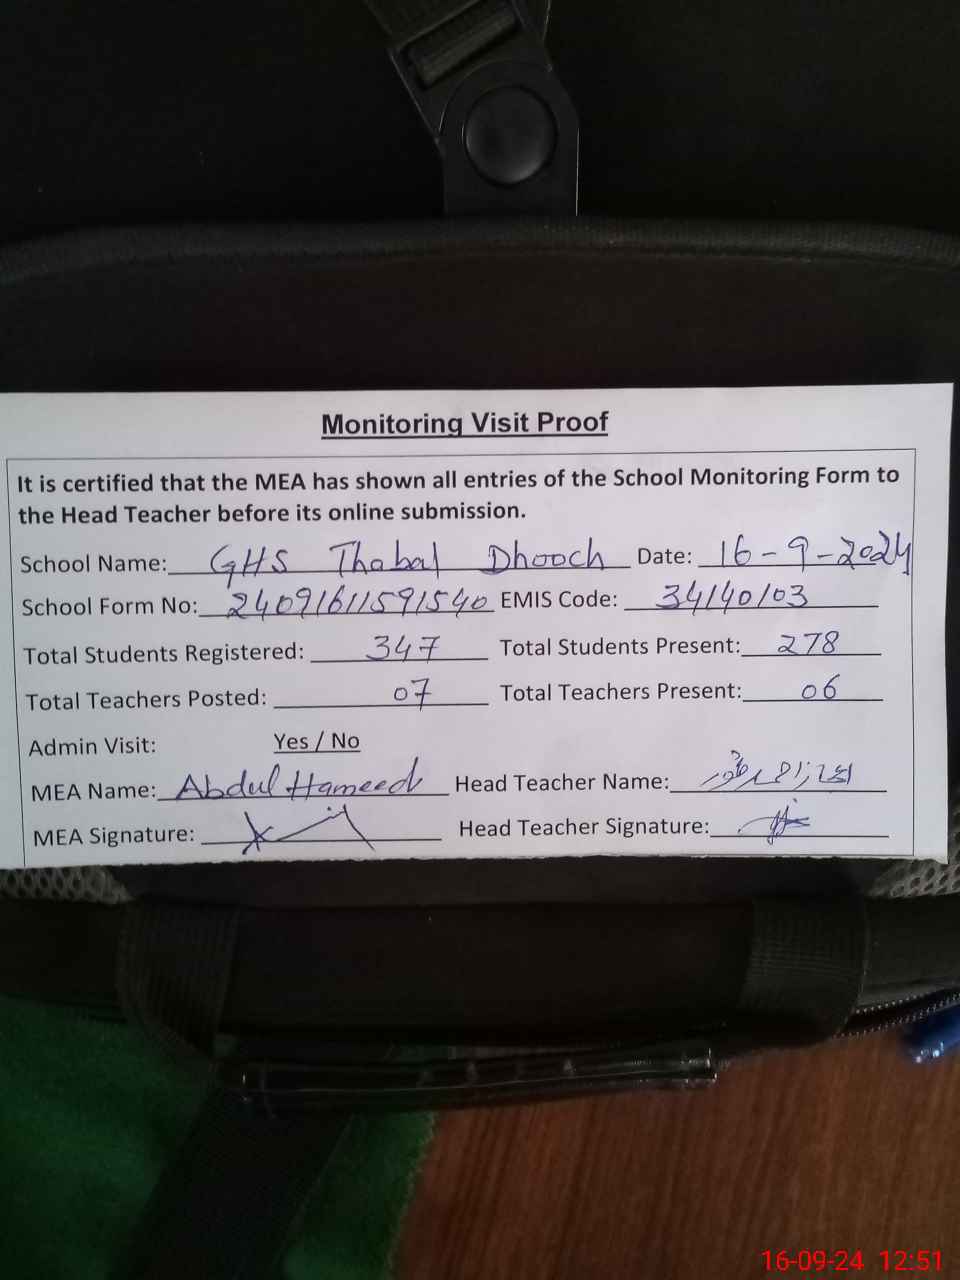 Monitoring Visit Proof
It is certified that the MEA has shown all entries of the School Monitoring Form to
the Head Teacher before its online submission.
School Name: GHS Thabal Dhooch Date: 16-9-2024
School Form No: 24091611591540 EMIS Code: 34140103
Total Students Registered: 347 Total Students Present: 278
Total Teachers Posted: 07 Total Teachers Present: 06
Admin Visit: Yes / No
MEA Name: Abdul Hameed Head Teacher Name:
MEA Signature: Head Teacher Signature:
16-09-24 12:51